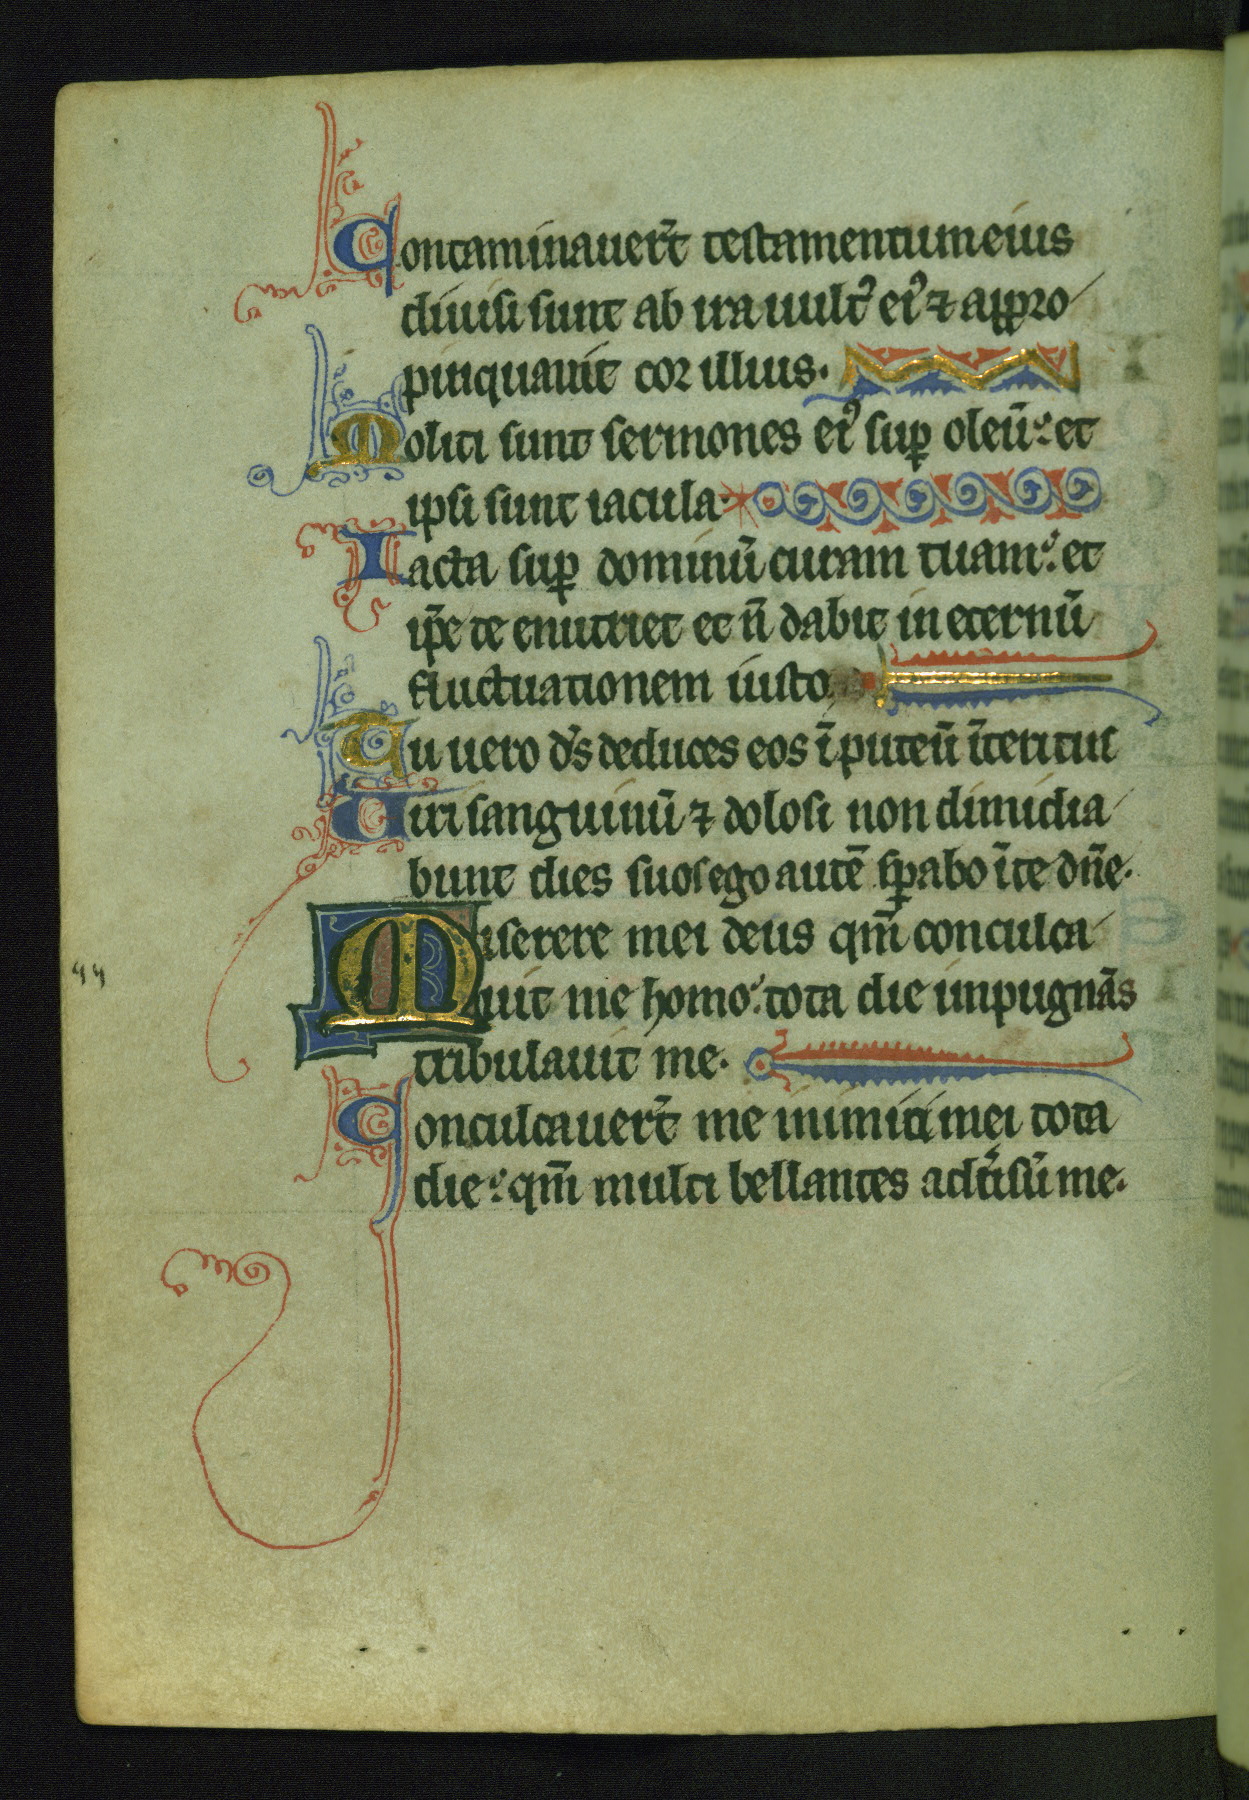 Contaminauer̄t testamentum eius
diuisi sunt ab ira uult᾿ ei᾿ ⁊ appro
pinquauit cor illius.
Moliti sunt sermones ei᾿ suꝑ oleū: et
ipsi sunt iacula.
Iacta suꝑ dominū curam tuam: et
ip̄e te enutriet et n̄ dabit in eternū
fluctuationem iusto
Tu uero d̄s deduces eos ī puteū īteritus
Uiri sanguinū ⁊ dolosi non dimidia
bunt dies suos ego autē sꝑabo ī te dn̄e.
Miserere mei deus qm̄ conculca
uit me homo: tota die inpugnās
44
tribulauit me.
Conculcauer̄t me inimici mei tota
die: qm̄ multi bellantes aduͥsū me.